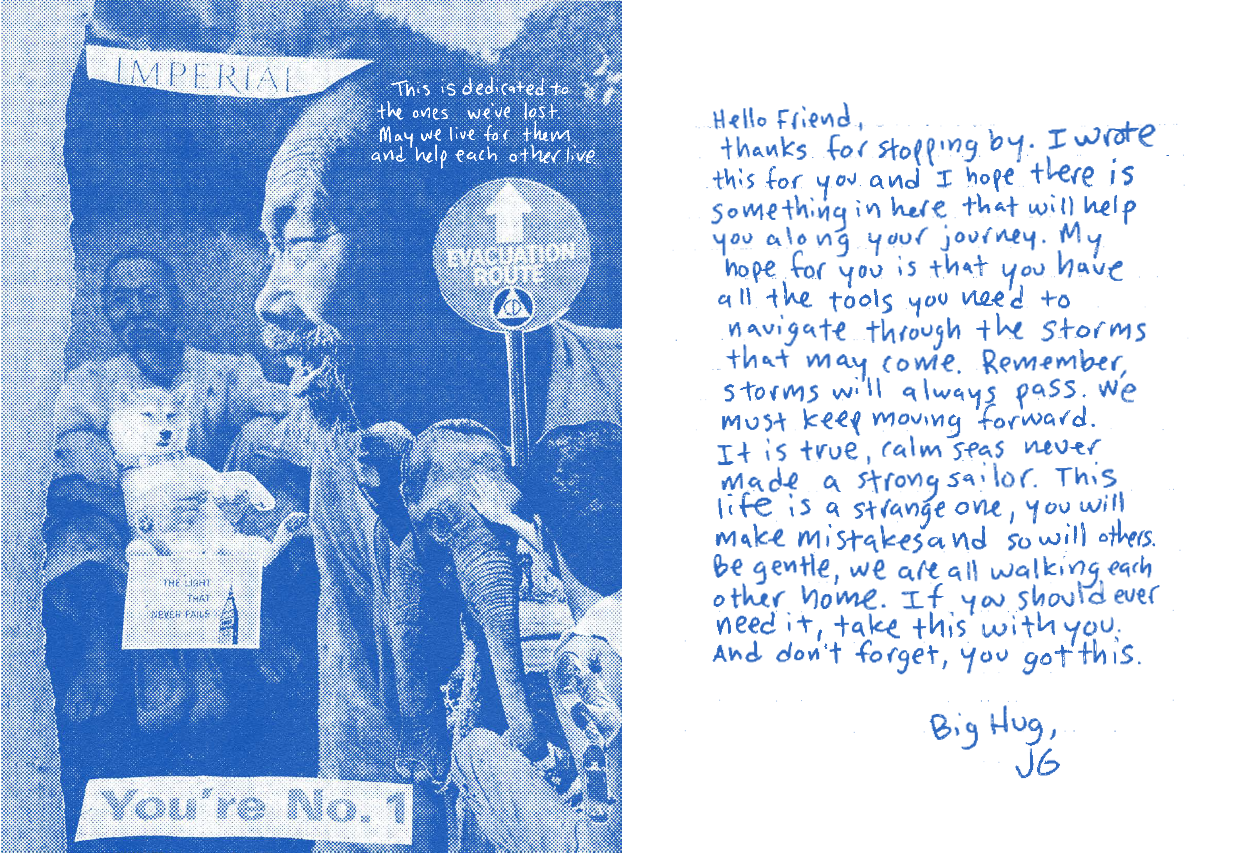 IMPERIAL
This is dedicated to
the ones we've lost.
May we live for them
and help each other live
EVACUATION
ROUTE
THE LIGHT
THAT
NEVER FAILS
You're No. 1
Hello Friend,
thanks for stopping by. I wrote
this for you and I hope there is
something in here that will help
you along your journey. My
hope for you is that you have
all the tools you need to
navigate through the storms
that may come. Remember,
storms will always pass. We
must keep moving forward.
It is true, calm seas never
made a strong sailor. This
life is a strange one, you will
make mistakes and so will others.
Be gentle, we are all walking each
other home. If you should ever
need it, take this with you.
And don't forget, you got this.
Big Hug,
JG